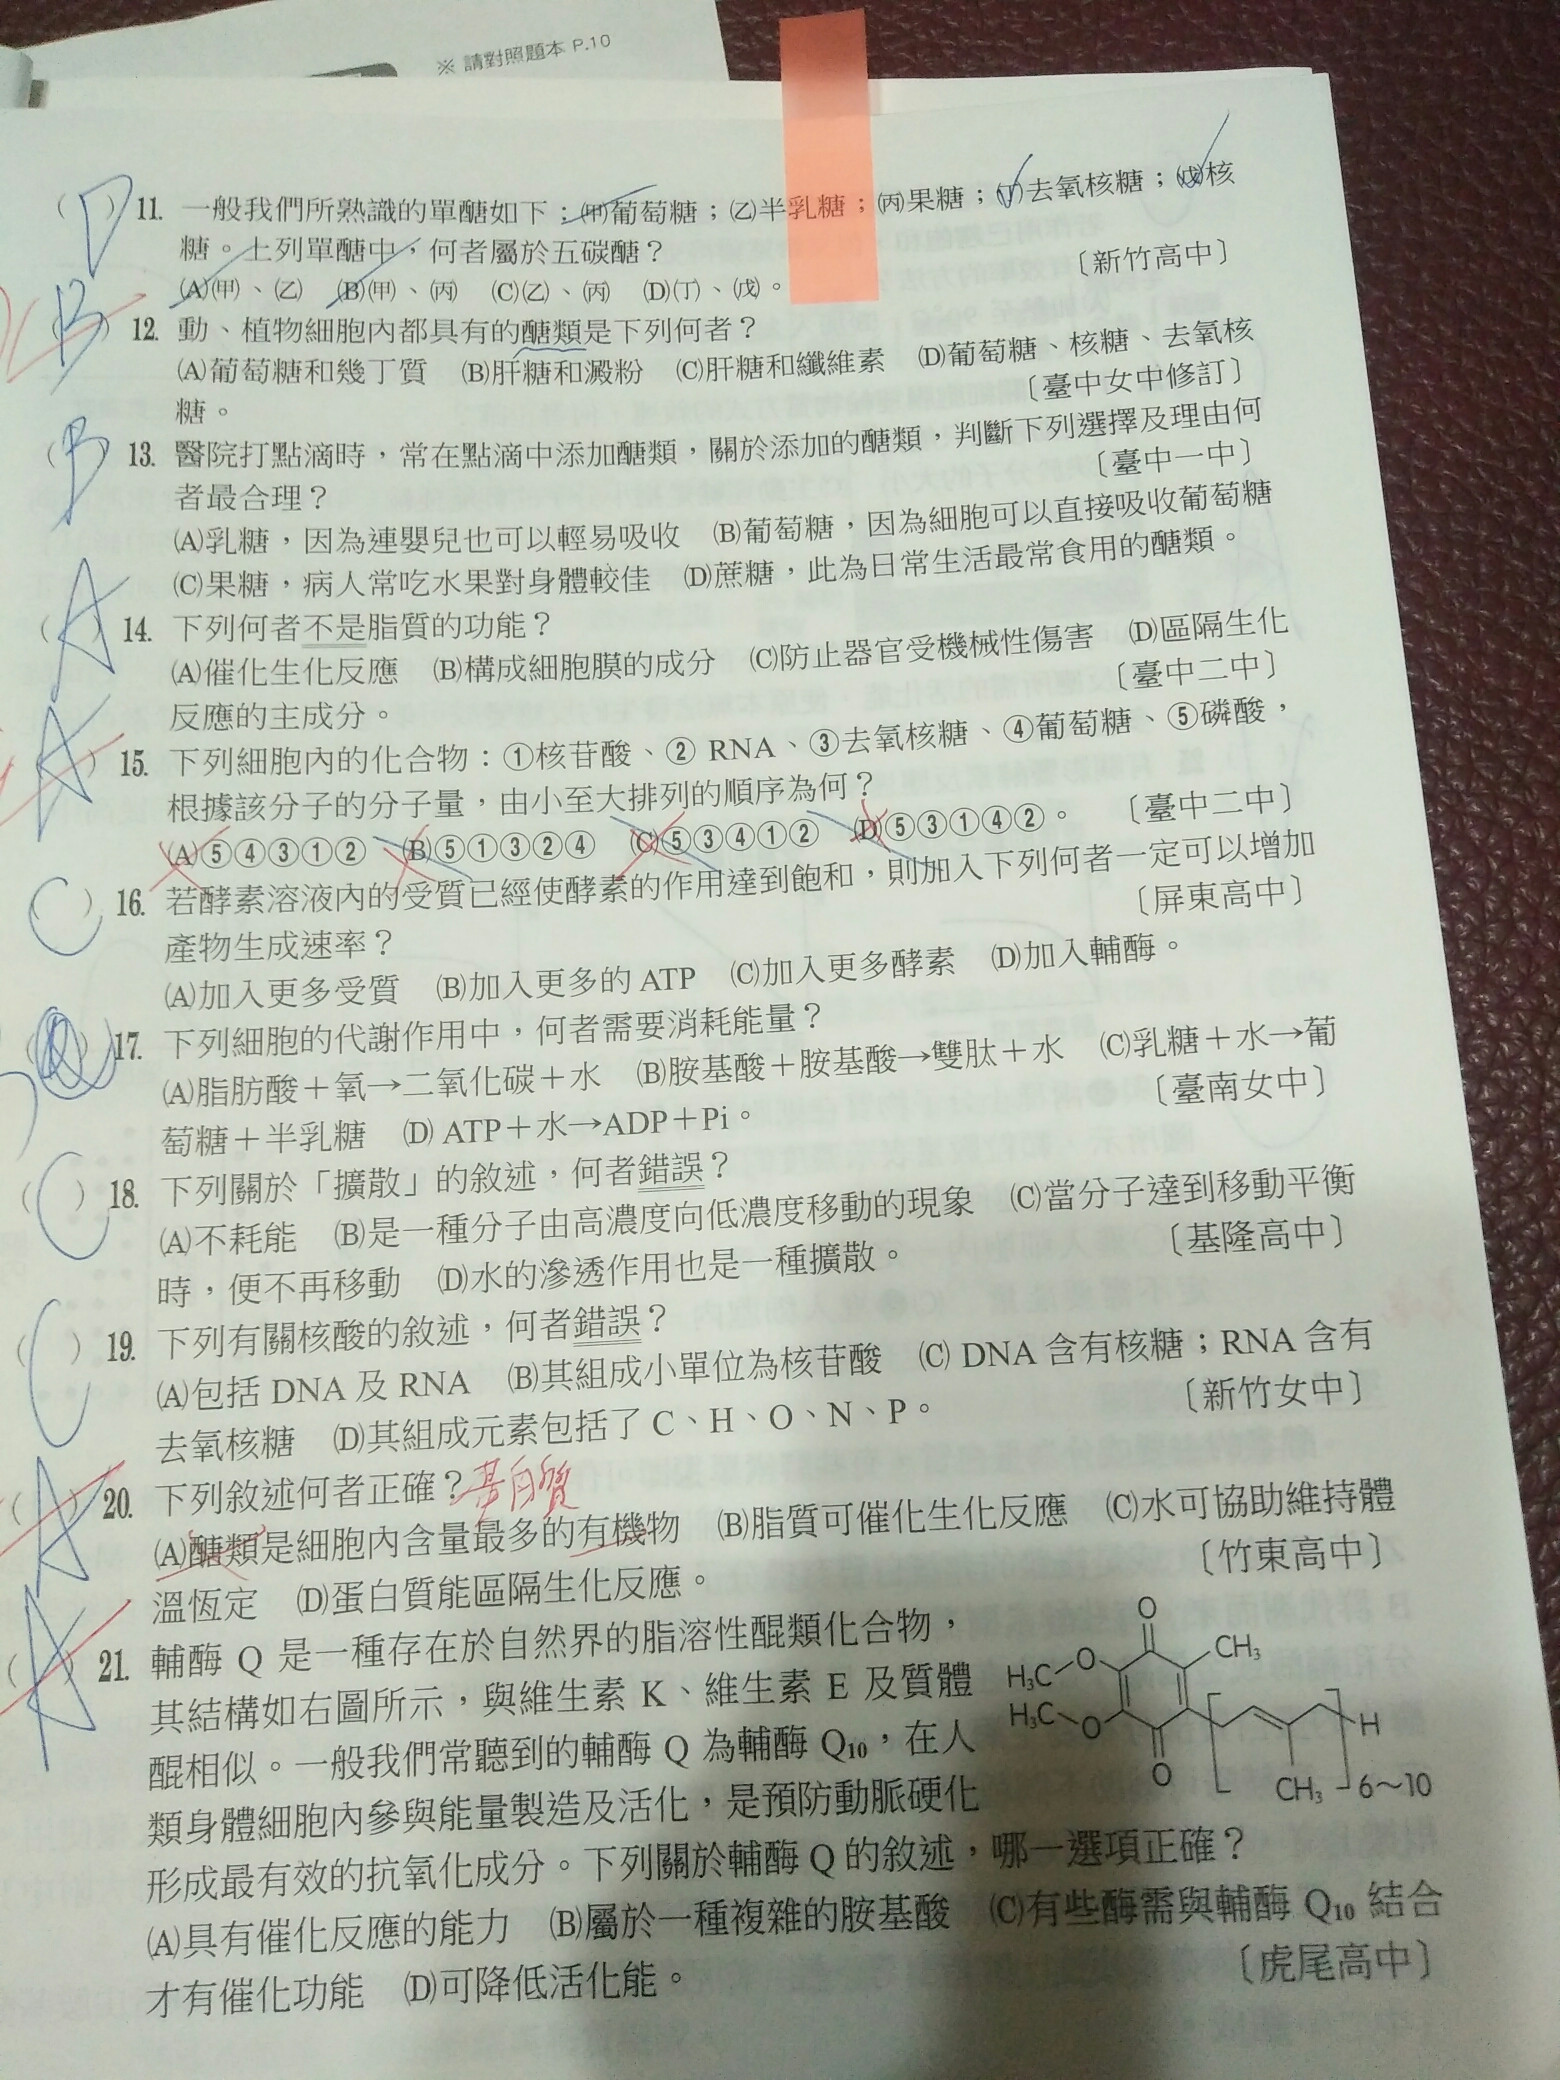 ※ 請對照題本 P.10
( D ) 11. 一般我們所熟識的單醣如下：㈙葡萄糖；㈚半乳糖；㈛果糖；㈜去氧核糖；㈝核
糖。上列單醣中，何者屬於五碳醣？〔新竹高中〕
(A)㈙、㈚ (B)㈙、㈛ (C)㈚、㈛ (D)㈜、㈝。
( B ) 12. 動、植物細胞內都具有的醣類是下列何者？
(A)葡萄糖和幾丁質 (B)肝糖和澱粉 (C)肝糖和纖維素 (D)葡萄糖、核糖、去氧核
糖。〔臺中女中修訂〕
( B ) 13. 醫院打點滴時，常在點滴中添加醣類，關於添加的醣類，判斷下列選擇及理由何
者最合理？〔臺中一中〕
(A)乳糖，因為連嬰兒也可以輕易吸收 (B)葡萄糖，因為細胞可以直接吸收葡萄糖
(C)果糖，病人常吃水果對身體較佳 (D)蔗糖，此為日常生活最常食用的醣類。
( A ) 14. 下列何者不是脂質的功能？
(A)催化生化反應 (B)構成細胞膜的成分 (C)防止器官受機械性傷害 (D)區隔生化
反應的主成分。〔臺中二中〕
( A ) 15. 下列細胞內的化合物：①核苷酸、② RNA、③去氧核糖、④葡萄糖、⑤磷酸，
根據該分子的分子量，由小至大排列的順序為何？
(A)⑤④③①② (B)⑤①③②④ (C)⑤③④①② (D)⑤③①④②。〔臺中二中〕
( C ) 16. 若酵素溶液內的受質已經使酵素的作用達到飽和，則加入下列何者一定可以增加
產物生成速率？〔屏東高中〕
(A)加入更多受質 (B)加入更多的 ATP (C)加入更多酵素 (D)加入輔酶。
( ) 17. 下列細胞的代謝作用中，何者需要消耗能量？
(A)脂肪酸＋氧→二氧化碳＋水 (B)胺基酸＋胺基酸→雙肽＋水 (C)乳糖＋水→葡
萄糖＋半乳糖 (D) ATP＋水→ADP＋Pi。〔臺南女中〕
( C ) 18. 下列關於「擴散」的敘述，何者錯誤？
(A)不耗能 (B)是一種分子由高濃度向低濃度移動的現象 (C)當分子達到移動平衡
時，便不再移動 (D)水的滲透作用也是一種擴散。〔基隆高中〕
( C ) 19. 下列有關核酸的敘述，何者錯誤？
(A)包括 DNA 及 RNA (B)其組成小單位為核苷酸 (C) DNA 含有核糖；RNA 含有
去氧核糖 (D)其組成元素包括了 C、H、O、N、P。〔新竹女中〕
( A ) 20. 下列敘述何者正確？
(A)醣類是細胞內含量最多的有機物 (B)脂質可催化生化反應 (C)水可協助維持體
溫恆定 (D)蛋白質能區隔生化反應。〔竹東高中〕
( A ) 21. 輔酶 Q 是一種存在於自然界的脂溶性醌類化合物，
其結構如右圖所示，與維生素 K、維生素 E 及質體
醌相似。一般我們常聽到的輔酶 Q 為輔酶 Q10，在人
類身體細胞內參與能量製造及活化，是預防動脈硬化
形成最有效的抗氧化成分。下列關於輔酶 Q 的敘述，哪一選項正確？
(A)具有催化反應的能力 (B)屬於一種複雜的胺基酸 (C)有些酶需與輔酶 Q10 結合
才有催化功能 (D)可降低活化能。〔虎尾高中〕
O
H₃C O CH₃
H₃C O H
O CH₃ 6～10